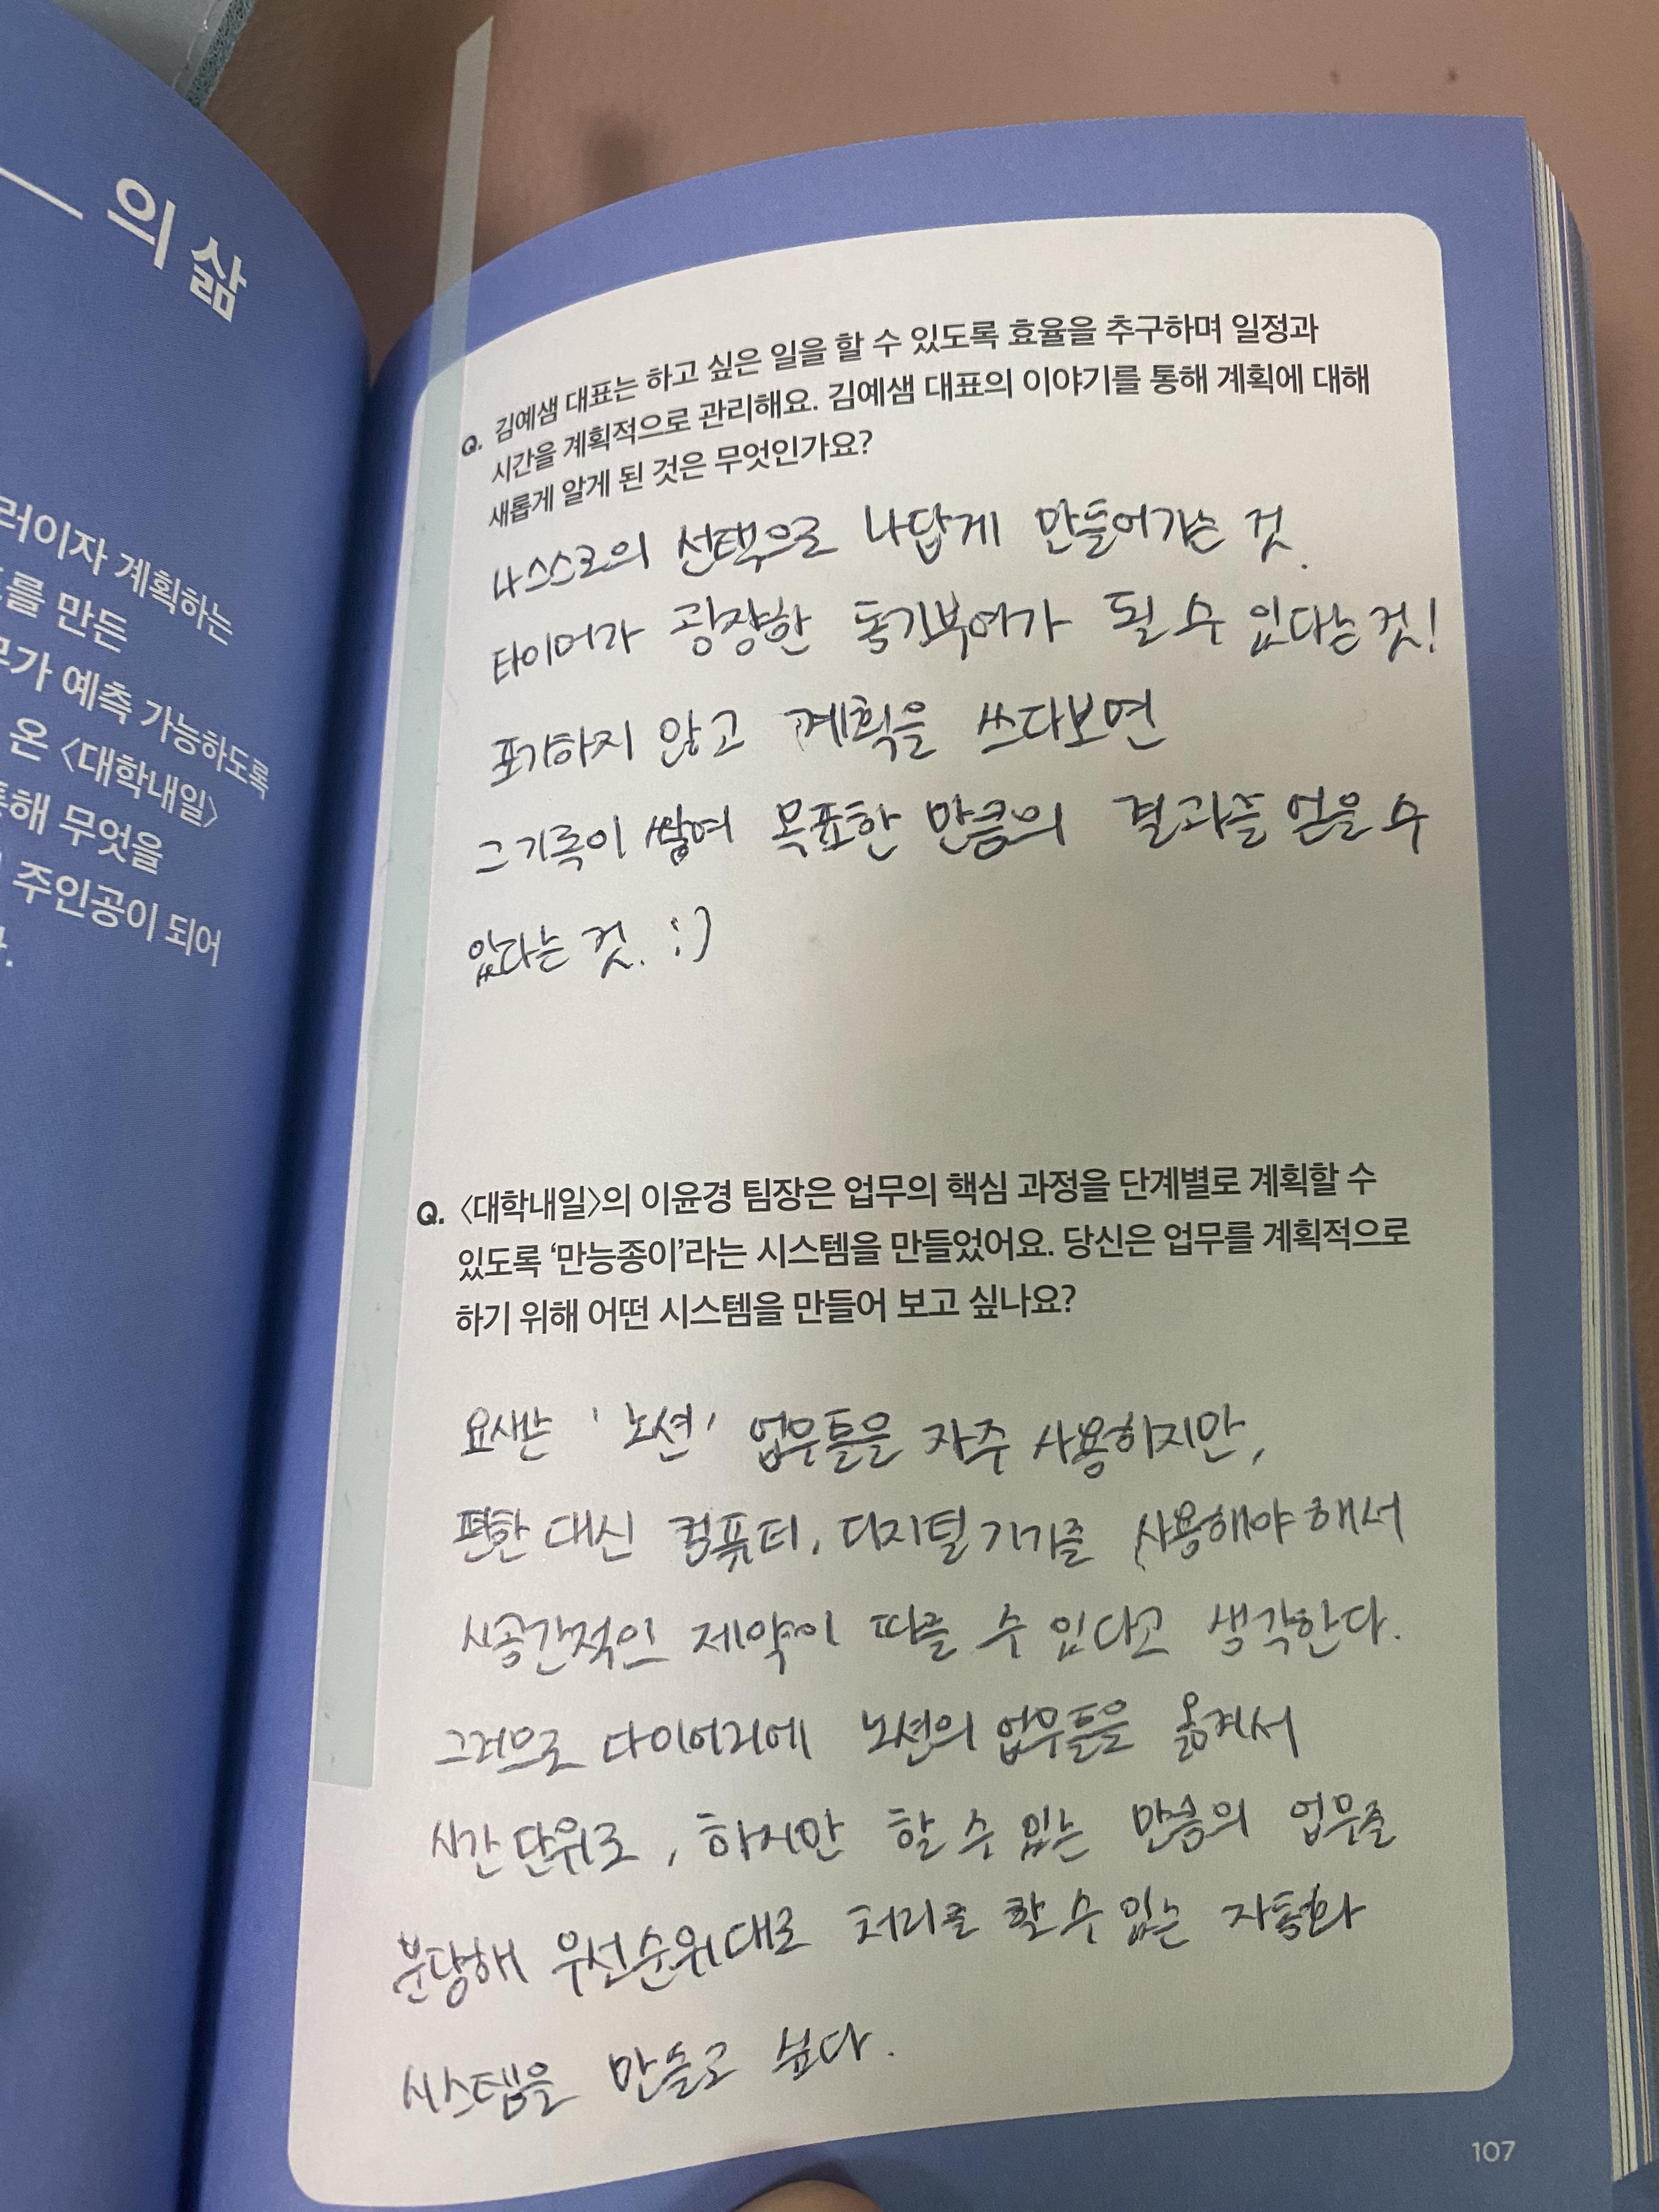 의 삶
러이자 계획하는
를 만든
가 예측 가능하도록
온 〈대학내일〉
해 무엇을
주인공이 되어
Q. 김예샘 대표는 하고 싶은 일을 할 수 있도록 효율을 추구하며 일정과
시간을 계획적으로 관리해요. 김예샘 대표의 이야기를 통해 계획에 대해
새롭게 알게 된 것은 무엇인가요?
나스스로의 선택으로 나답게 만들어가는 것.
타이머가 굉장한 동기부여가 될 수 있다는 것!
포기하지 않고 계획을 쓰다보면
그 기록이 쌓여 목표한 만큼의 결과를 얻을 수
있다는 것. :)
Q. 〈대학내일〉의 이윤경 팀장은 업무의 핵심 과정을 단계별로 계획할 수
있도록 ‘만능종이’라는 시스템을 만들었어요. 당신은 업무를 계획적으로
하기 위해 어떤 시스템을 만들어 보고 싶나요?
요새는 '노션' 업무툴을 자주 사용하지만,
편한 대신 컴퓨터, 디지털 기기를 사용해야 해서
시공간적인 제약이 따를 수 있다고 생각한다.
그러므로 다이어리에 노션의 업무툴을 옮겨서
시간 단위로, 하지만 할 수 있는 만큼의 업무를
분당해 우선순위대로 처리를 할 수 있는 자동화
시스템을 만들고 싶다.
107